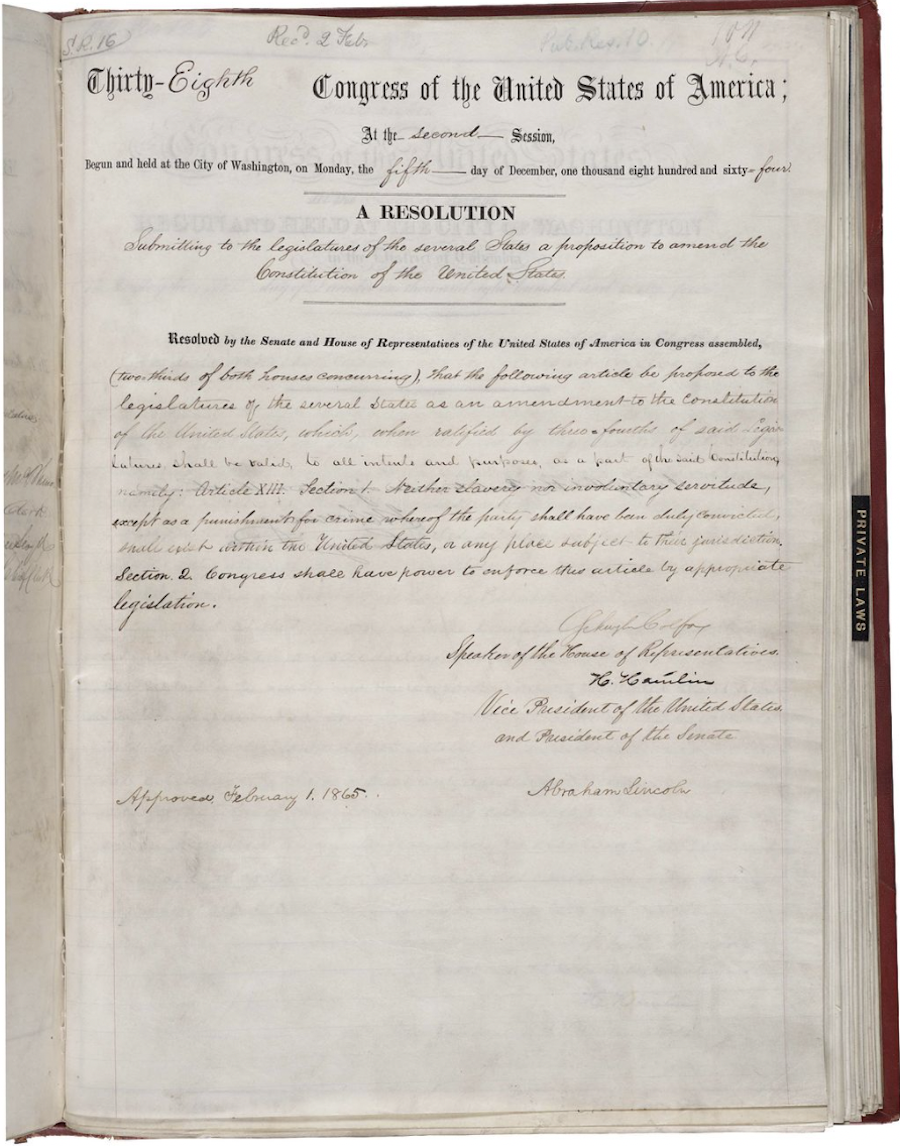 S.R. 16
Rec'd. 2 Feb.
Pub. Res. 10.
Thirty-Eighth Congress of the United States of America;
At the second Session,
Begun and held at the City of Washington, on Monday, the fifth day of December, one thousand eight hundred and sixty-four.
A RESOLUTION
Submitting to the legislatures of the several States a proposition to amend the
Constitution of the United States.
Resolved by the Senate and House of Representatives of the United States of America in Congress assembled,
(two-thirds of both houses concurring), that the following article be proposed to the
legislatures of the several States as an amendment to the Constitution
of the United States, which, when ratified by three-fourths of said Legis-
latures, shall be valid, to all intents and purposes, as a part of the said Constitution,
namely: Article XIII. Section 1. Neither slavery nor involuntary servitude,
except as a punishment for crime whereof the party shall have been duly convicted,
shall exist within the United States, or any place subject to their jurisdiction.
Section 2. Congress shall have power to enforce this article by appropriate
legislation.
Schuyler Colfax
Speaker of the House of Representatives.
H. Hamlin
Vice President of the United States,
and President of the Senate
Approved, February 1. 1865.
Abraham Lincoln
PRIVATE LAWS